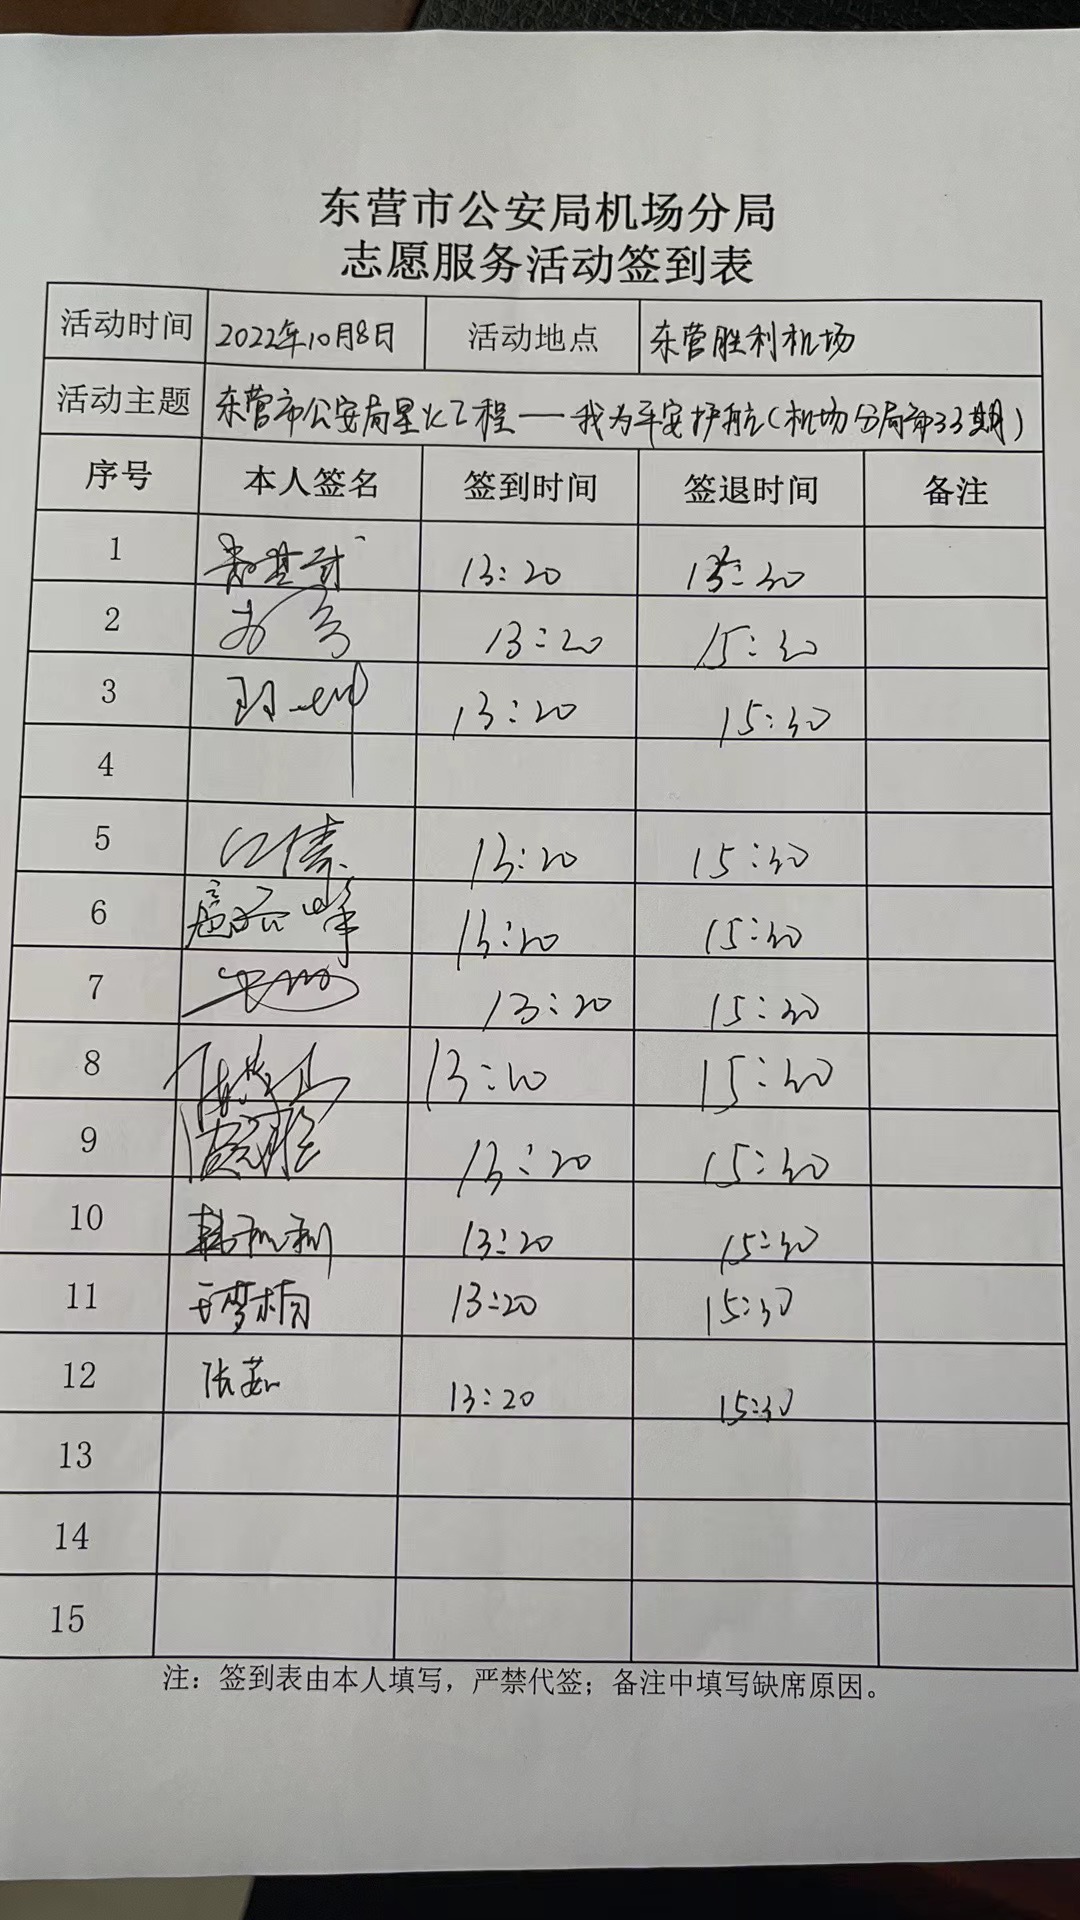 东营市公安局机场分局
志愿服务活动签到表
活动时间 2022年10月8日 活动地点 东营胜利机场
活动主题 东营市公安局星火工程——我为平安护航(机场分局第33期)
序号 本人签名 签到时间 签退时间 备注
1 13:20 15:30
2 13:20 15:30
3 13:20 15:30
4
5 江倩 13:20 15:30
6 13:20 15:30
7 13:20 15:30
8 13:20 15:30
9 13:20 15:30
10 韩利利 13:20 15:30
11 王梦楠 13:20 15:30
12 张茹 13:20 15:30
13
14
15
注：签到表由本人填写，严禁代签；备注中填写缺席原因。